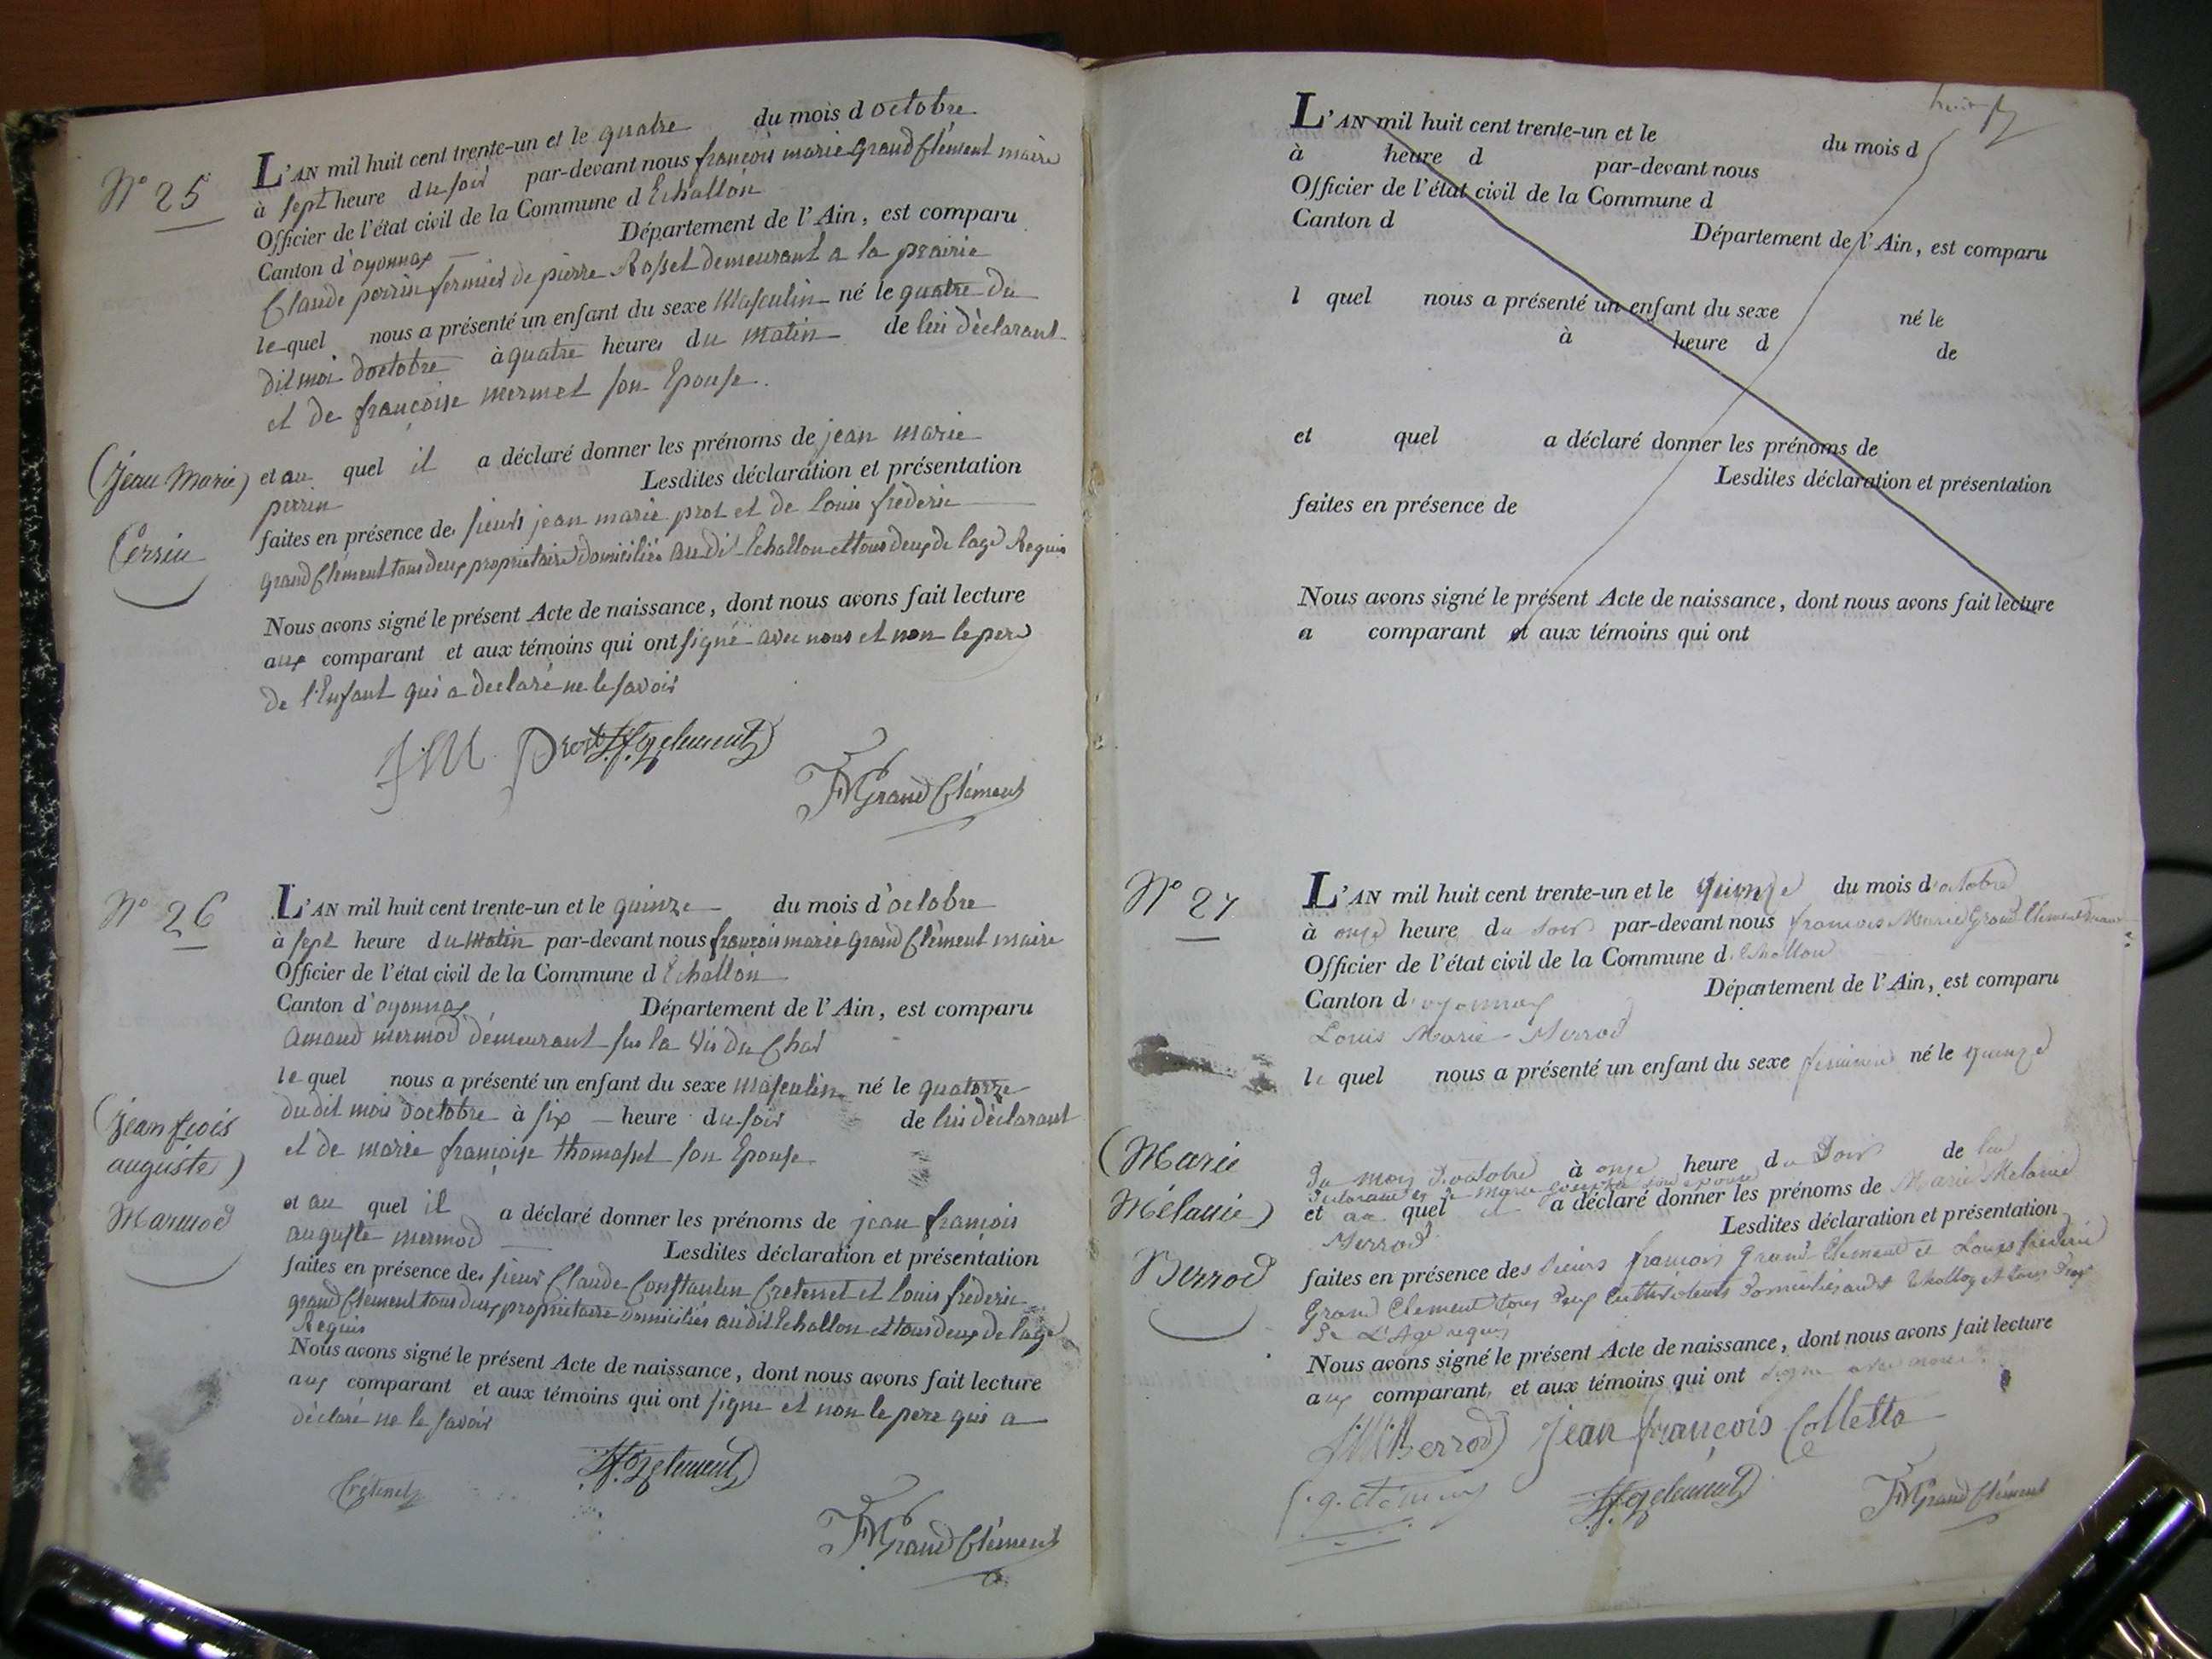 N° 25
L'AN mil huit cent trente-un et le quatre du mois d octobre
à sept heure du soir par-devant nous françois marie Grand Clément maire
Officier de l'état civil de la Commune d Echallon
Canton d'oyonnax Département de l'Ain, est comparu
Claude perrin fermier de pierre Rosset demeurant a la prairie
le quel nous a présenté un enfant du sexe Masculin né le quatre du
dit moi doctobre à quatre heures du matin de lui déclarant
et de françoise mermet son Epouse.
(Jean Marie) et au quel il a déclaré donner les prénoms de jean marie
perrin Lesdites déclaration et présentation
Perrin
faites en présence des sieurs jean marie prot et de Louis fréderic
grand Clément tous deux propriétaire domiciliés au dit Echallon et tous deux de lage Requis
Nous avons signé le présent Acte de naissance, dont nous avons fait lecture
aux comparant et aux témoins qui ont signé avec nous et non le pere
de l'Enfant qui a declaré ne le savoir
J M Prost L.f.gclement
FMGrand Clément
N° 26
L'AN mil huit cent trente-un et le quinze du mois d'octobre
à sept heure du matin par-devant nous françois marie Grand Clément maire
Officier de l'état civil de la Commune d Echallon
Canton d'oyonnax Département de l'Ain, est comparu
Amand mermod demeurant sur la
le quel nous a présenté un enfant du sexe masculin né le quatorze
dudit mois doctobre à six heure du soir de lui déclarant
et de marie françoise thomasset son Epouse
(Jean fçois
auguste)
Marmod
et au quel il a déclaré donner les prénoms de jean françois
auguste mermod Lesdites déclaration et présentation
faites en présence des sieur Claude Constantin Cretenet et Louis fréderic
grand Clement tous deux propriétaire domiciliés au dit Echallon et tous deux de lage
Requis
Nous avons signé le présent Acte de naissance, dont nous avons fait lecture
aux comparant et aux témoins qui ont signe et non le pere qui a
déclaré ne le savoir
Crétenet L.f.gclement
FMGrand Clément
L'AN mil huit cent trente-un et le du mois d
à heure d par-devant nous
Officier de l'état civil de la Commune d
Canton d Département de l'Ain, est comparu
l quel nous a présenté un enfant du sexe né le
à heure d de
et quel a déclaré donner les prénoms de
Lesdites déclaration et présentation
faites en présence de
Nous avons signé le présent Acte de naissance, dont nous avons fait lecture
a comparant et aux témoins qui ont
N° 27
L'AN mil huit cent trente-un et le quinze du mois d'octobre
à onze heure du soir par-devant nous francois Marie Grand Clement maire
Officier de l'état civil de la Commune d Echallon
Canton d'oyonnax Département de l'Ain, est comparu
Louis Marie Berrod
le quel nous a présenté un enfant du sexe feminin né le quinze
(Marie
Mélanie)
Berrod
du mois d'octobre à onze heure du Soir de lui
declarant et de marie josephte son epouse
et au quel il a déclaré donner les prénoms de Marie Melanie
Berrod Lesdites déclaration et présentation
faites en présence des sieurs francois Grand Clement et Louis frederic
Grand Clement tous deux Cultivateurs domiciliés audit Echallon et tous deux
de L'Age requis
Nous avons signé le présent Acte de naissance, dont nous avons fait lecture
aux comparant, et aux témoins qui ont signé avec nous
L M Berrod Jean françois Colletta
f. g. clément L.f.gclement FMGrand Clément